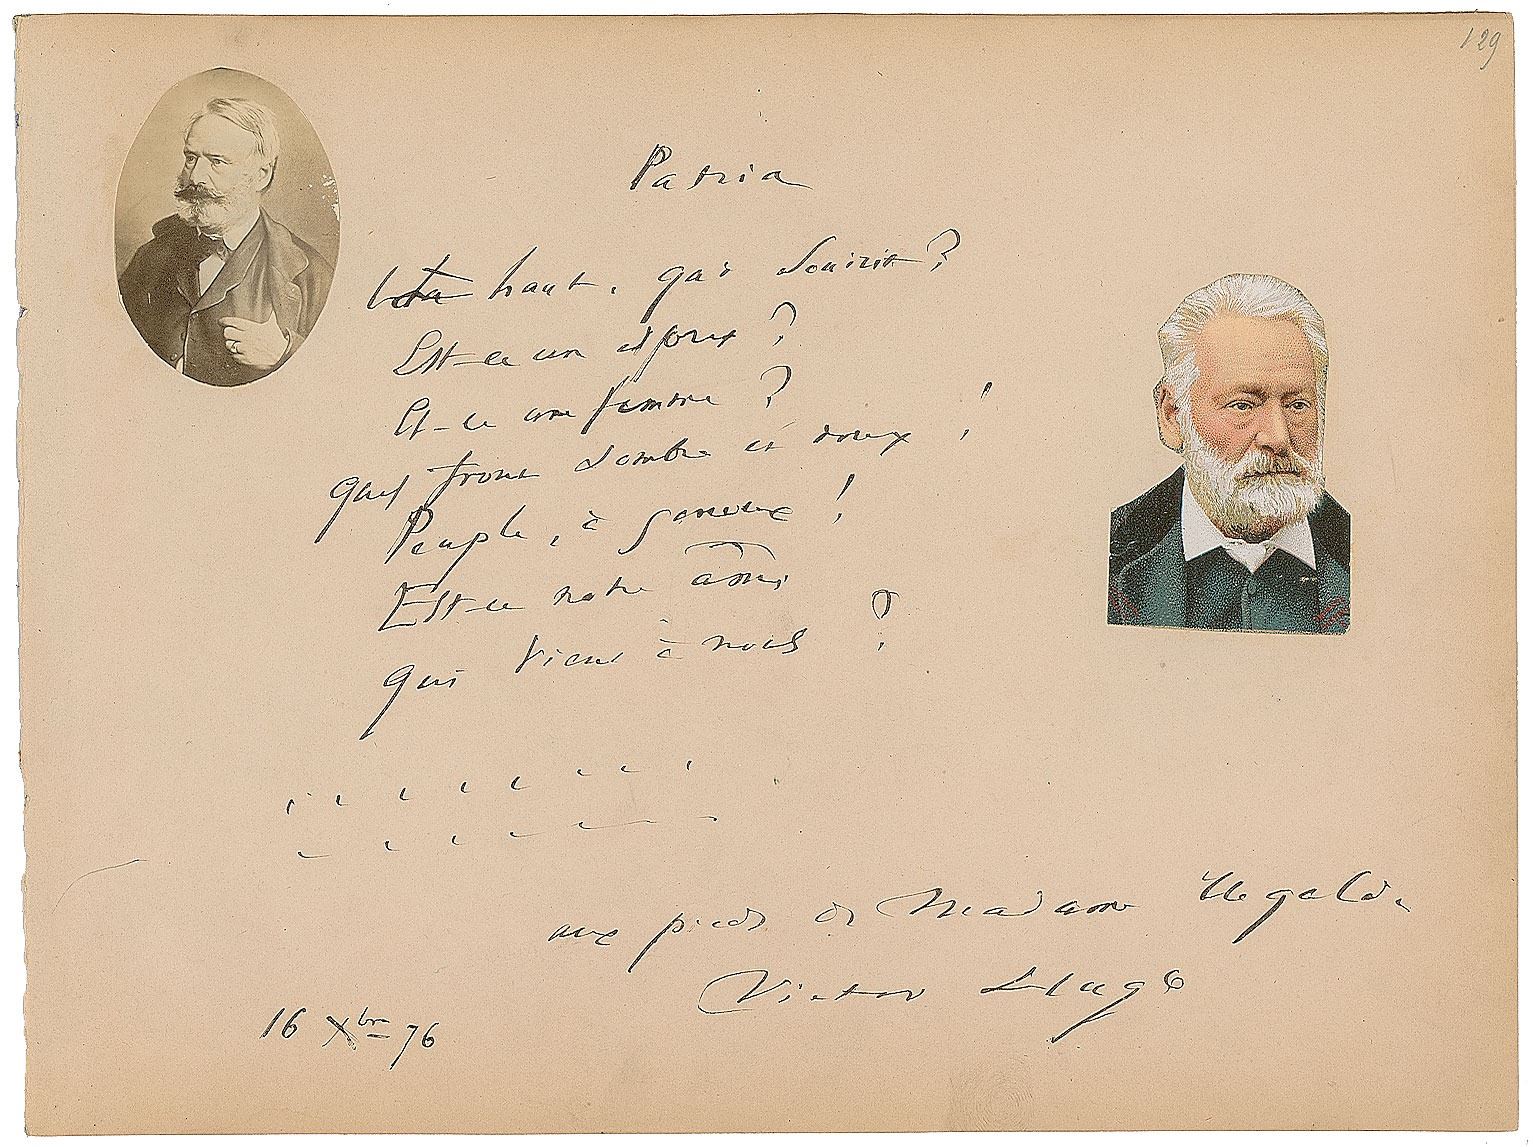 129
Patria
Là haut, qui sourit ?
Est-ce un esprit ?
Est-ce une femme ?
quel front sombre et doux !
Peuple, à genoux !
Est-ce notre âme
qui vient à nous ?
aux pieds de Madame Ugalde
Victor Hugo
16 Xbre 76